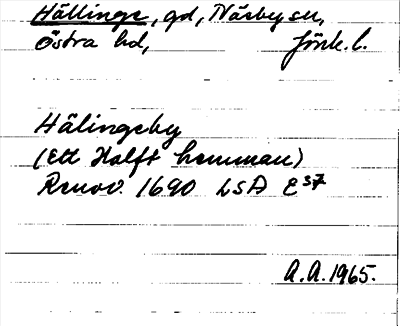 Hällinge, gd, Näsby sn,
Östra hd, Jönk. l.
Hälingeby
(Ett Halft hemman)
Renov. 1690 LSA E 57
A.A. 1965.